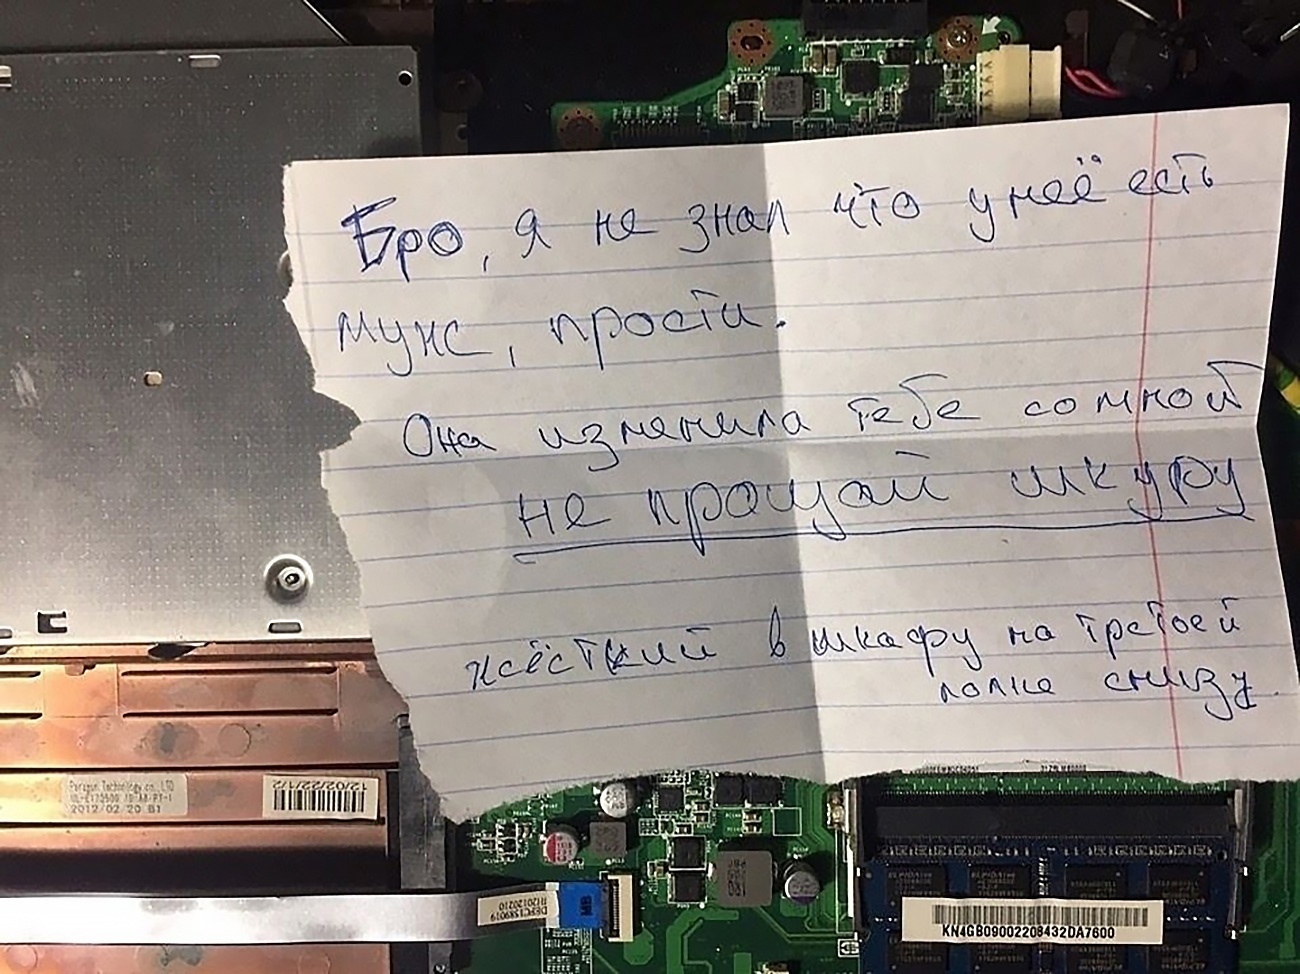 Бро, я не знал что у неё есть
муж, прости.
Она изменила тебе со мной
не прощай шкуру
жёсткий в шкафу на третьей
полке снизу.
Foryou Technology co., LTD
2012/02 20 B1
12/02/22/1/2
DEFC1S89019
R120120210
MB
KN4GB09002208432DA7600